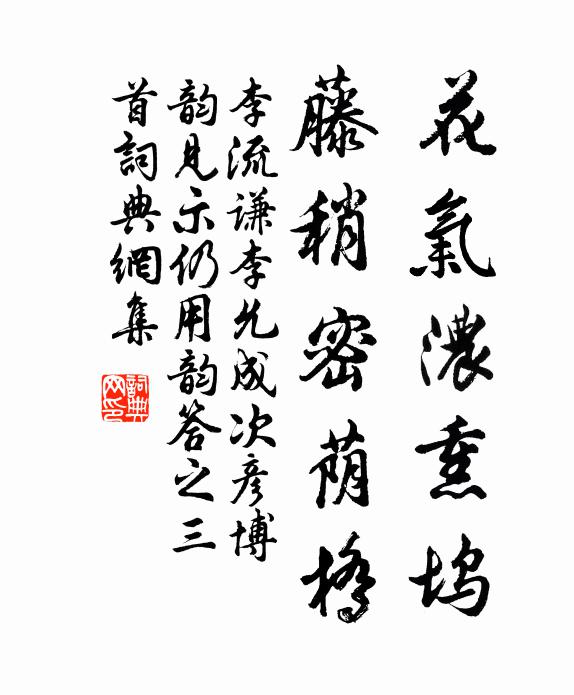 花氣濃熏塢
藤稍密蔭橋
李流謙李允成次彥博
韵見示仍用韵答之三
首詞典網集
詞典网印